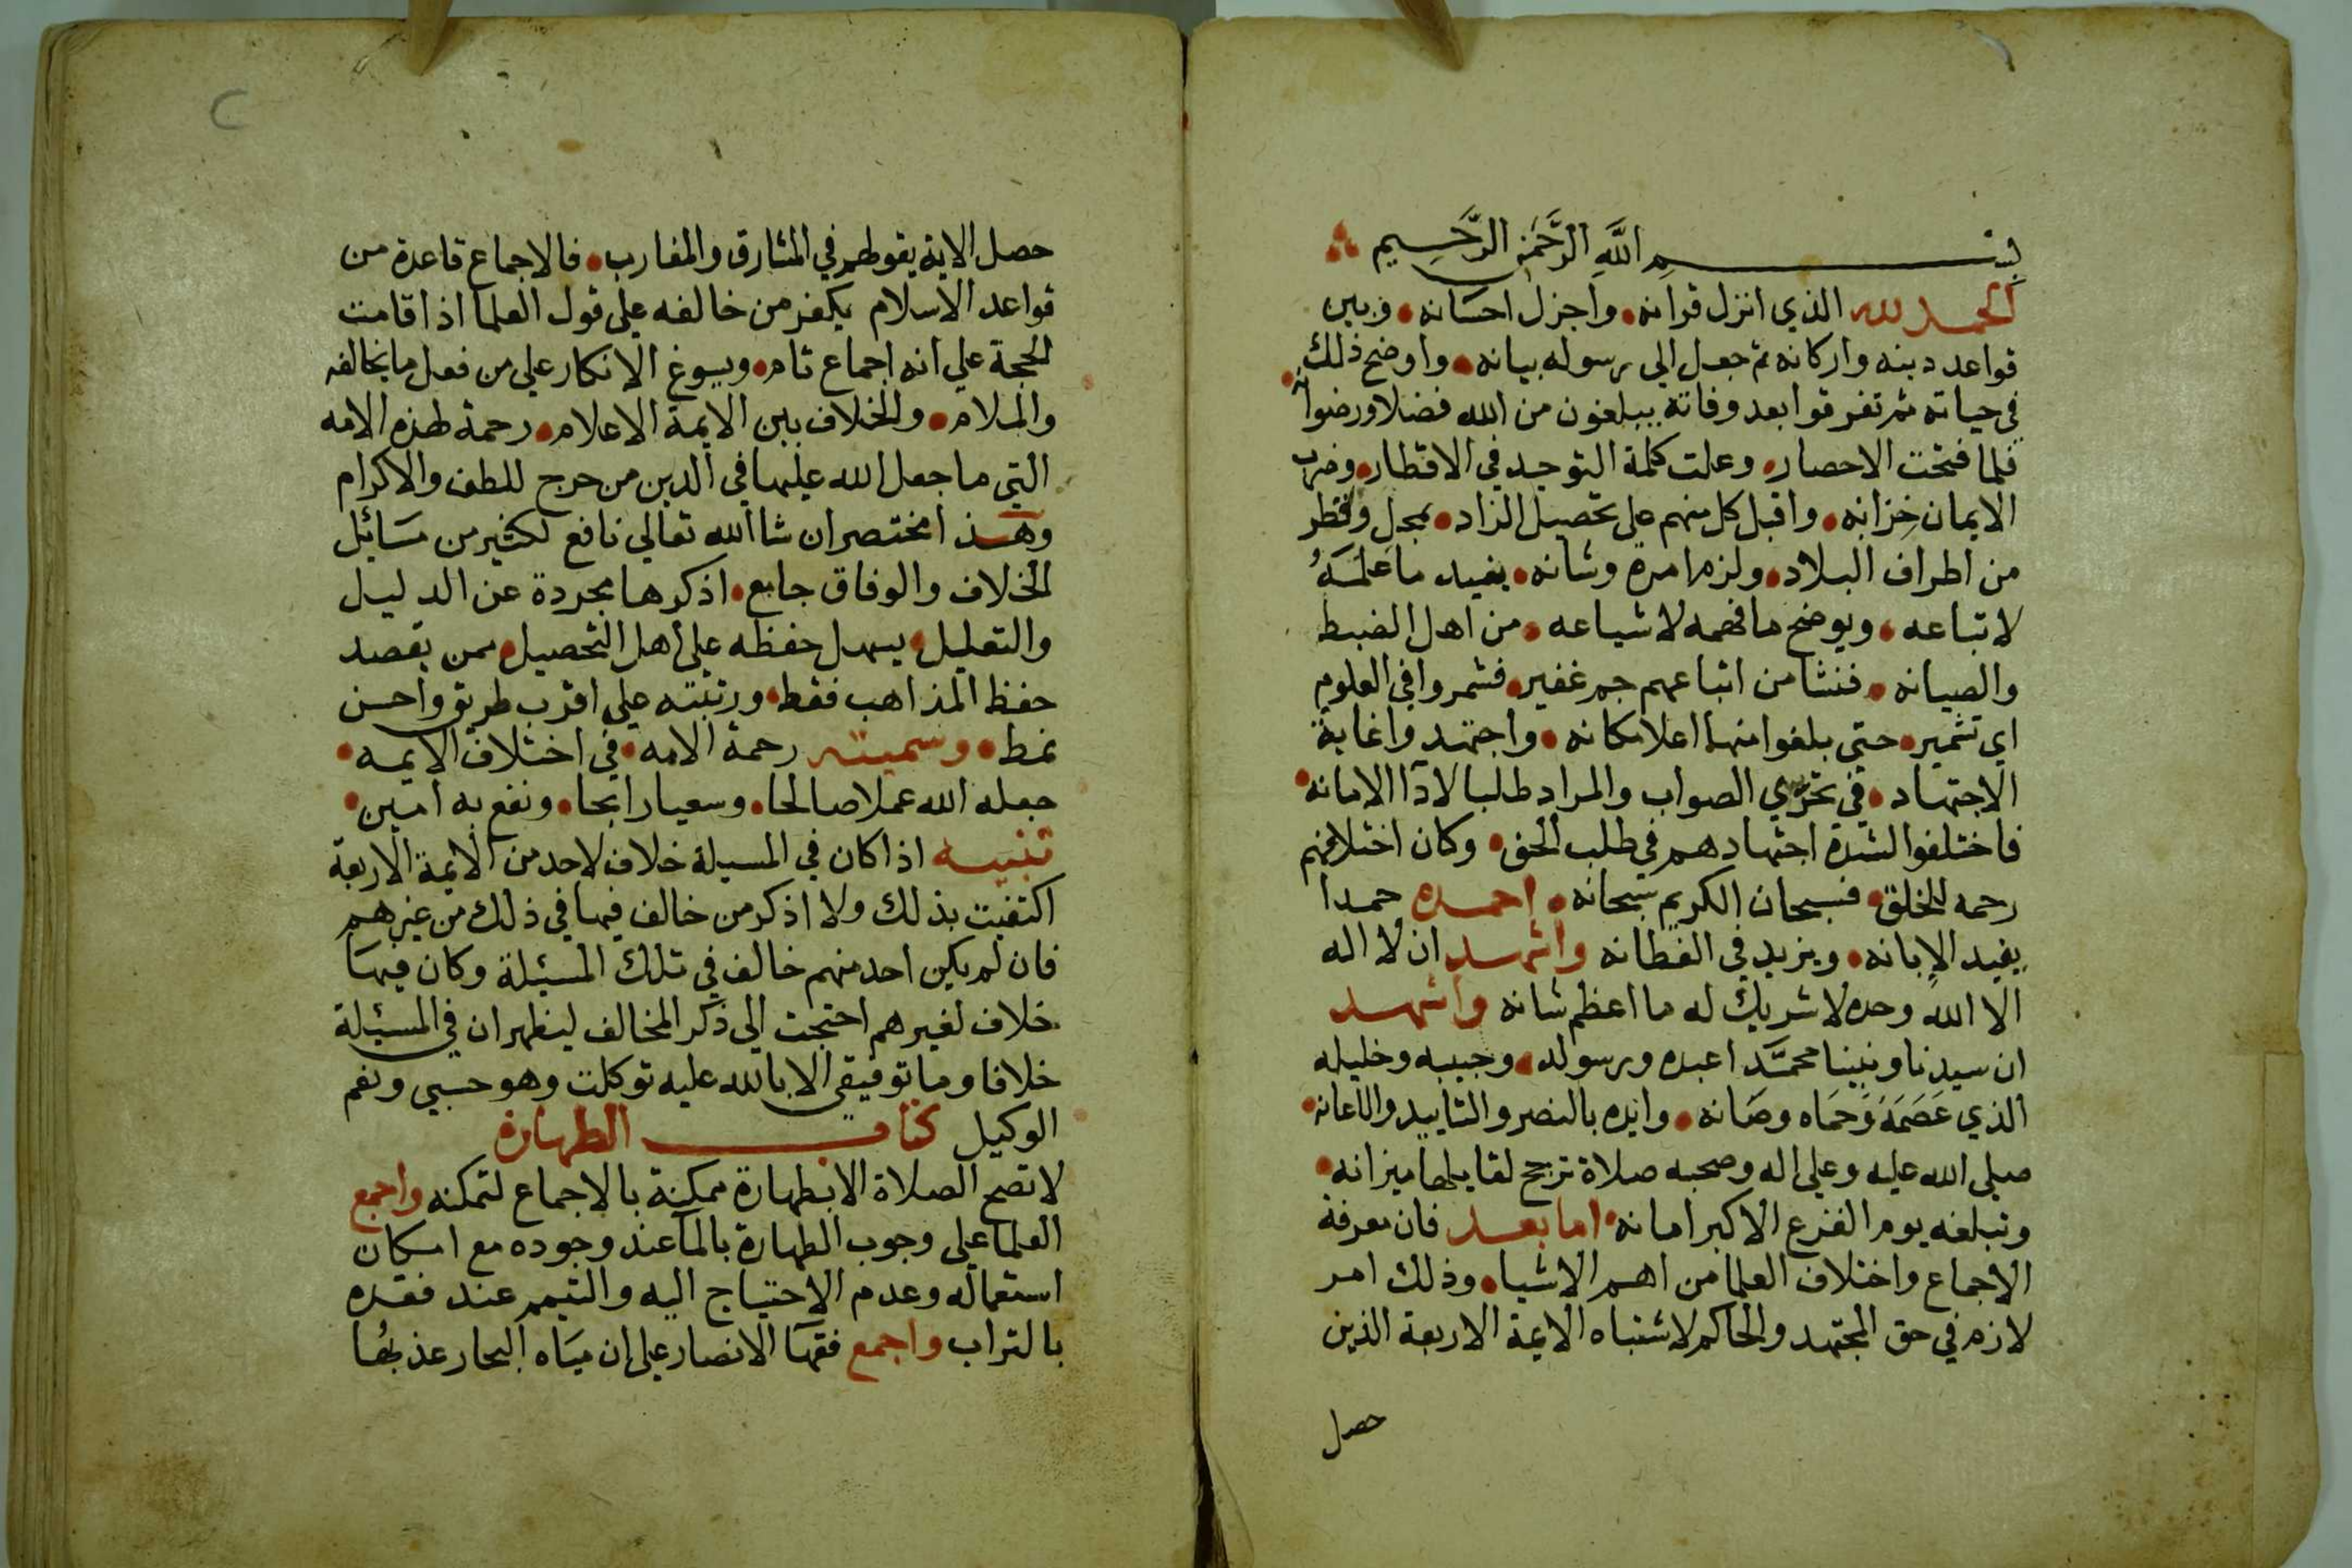 بسم الله الرحمن الرحيم
الحمد لله الذي انزل قرانه • واجزل احسانه • وبين
قواعد دينه واركانه ثم جعل الي رسوله بيانه • واوضح ذلك
في حياته ثم تفرقوا بعد وفاته يبلغون من الله فضلا ورضوانه
فلما فتحت الامصار • وعلت كلمة التوحيد في الاقطار • وضرب
الايمان جرانه • واقبل كل منهم علي تحصيل الزاد • بمحل وقطر
من اطراف البلاد • ولزم امره وشانه • يفيد ما عَلمَهُ
لاتباعه • ويوضح ما فهمه لاشياعه • من اهل الضبط
والصيانه • فنشا من اتباعهم جم غفير • فشمروا في العلوم
اي تشمير • حتي بلغوا منها اعلا مكانه • واجتهدوا غاية
الاجتهاد • في تحري الصواب والمراد طلبا لادآ الامانه •
فاختلفوا لشدة اجتهادهم في طلب الحق • وكان اختلافهم
رحمه للخلق • فسبحان الكريم سبحانه • احمده حمدا
يفيد الإبانه • ويزيد في الفطانه واشهد ان لا اله
الا الله وحده لا شريك له ما اعظم شانه واشهد
ان سيدنا ونبينا محمَّدا عبده ورسوله • وحبيبه وخليله
الذي عَصَمَهُ وَحمَاه وصَانه • وايده بالنصر والتاييد والاعانه •
صلي الله عليه وعلي اله وصحبه صلاة ترجح لقايلها ميزانه •
وتبلغه يوم الفزع الاكبر امانه • اما بعد فان معرفة
الاجماع واختلاف العلما من اهم الاشيا • وذلك امر
لازم في حق المجتهد والحاكم لاشتباه الايمة الاربعة الذين
حصل
حصل الاية بقولهم في المشارق والمغارب • فالاجماع قاعدة من
قواعد الاسلام يكفر من خالفه علي قول العلما اذا قامت
الحجة علي انه اجماع تام • ويسوغ الانكار علي من فعل ما يخالفه
والملام • والخلاف بين الايمة الاعلام • رحمة لهذه الامه
التي ما جعل الله عليها في الدين من حرج للطف والاكرام
وهذا مختصر ان شا الله تعالي نافع لكثير من مسَائل
الخلاف والوفاق جامع • اذكرها مجردة عن الدليل
والتعليل • يسهل حفظه علي أهل التحصيل • ممن يقصد
حفظ المذاهب فقط • ورتبته علي اقرب طريق واحسن
نمط • وسميته رحمة الامه • في اختلاف الايمه •
جعله الله عملا صالحا • وسعيا رابحا • ونفع به امين •
تنبيه اذا كان في المسيلة خلاف لاحد من الايمة الاربعة
اكتفيت بذلك ولا اذكر من خالف فيها في ذلك من غيرهم
فان لم يكن احد منهم خالف في تلك المسيئلة وكان فيهَا
خلاف لغيرهم احتجت الي ذكر المخالف ليظهر ان في المسيئلة
خلافا وما توفيقي الا بالله عليه توكلت وهو حسبي ونعم
الوكيل كتاب الطهارة
لا تصح الصلاة الا بطهارة ممكنة بالاجماع لتمكنه واجمع
العلما علي وجوب الطهارة بالمآ عند وجوده مع امكان
استعماله وعدم الاحتياج اليه والتيمم عند فقده
بالتراب واجمع فقهَا الانصار علي ان ميَاه البحار عذبُها